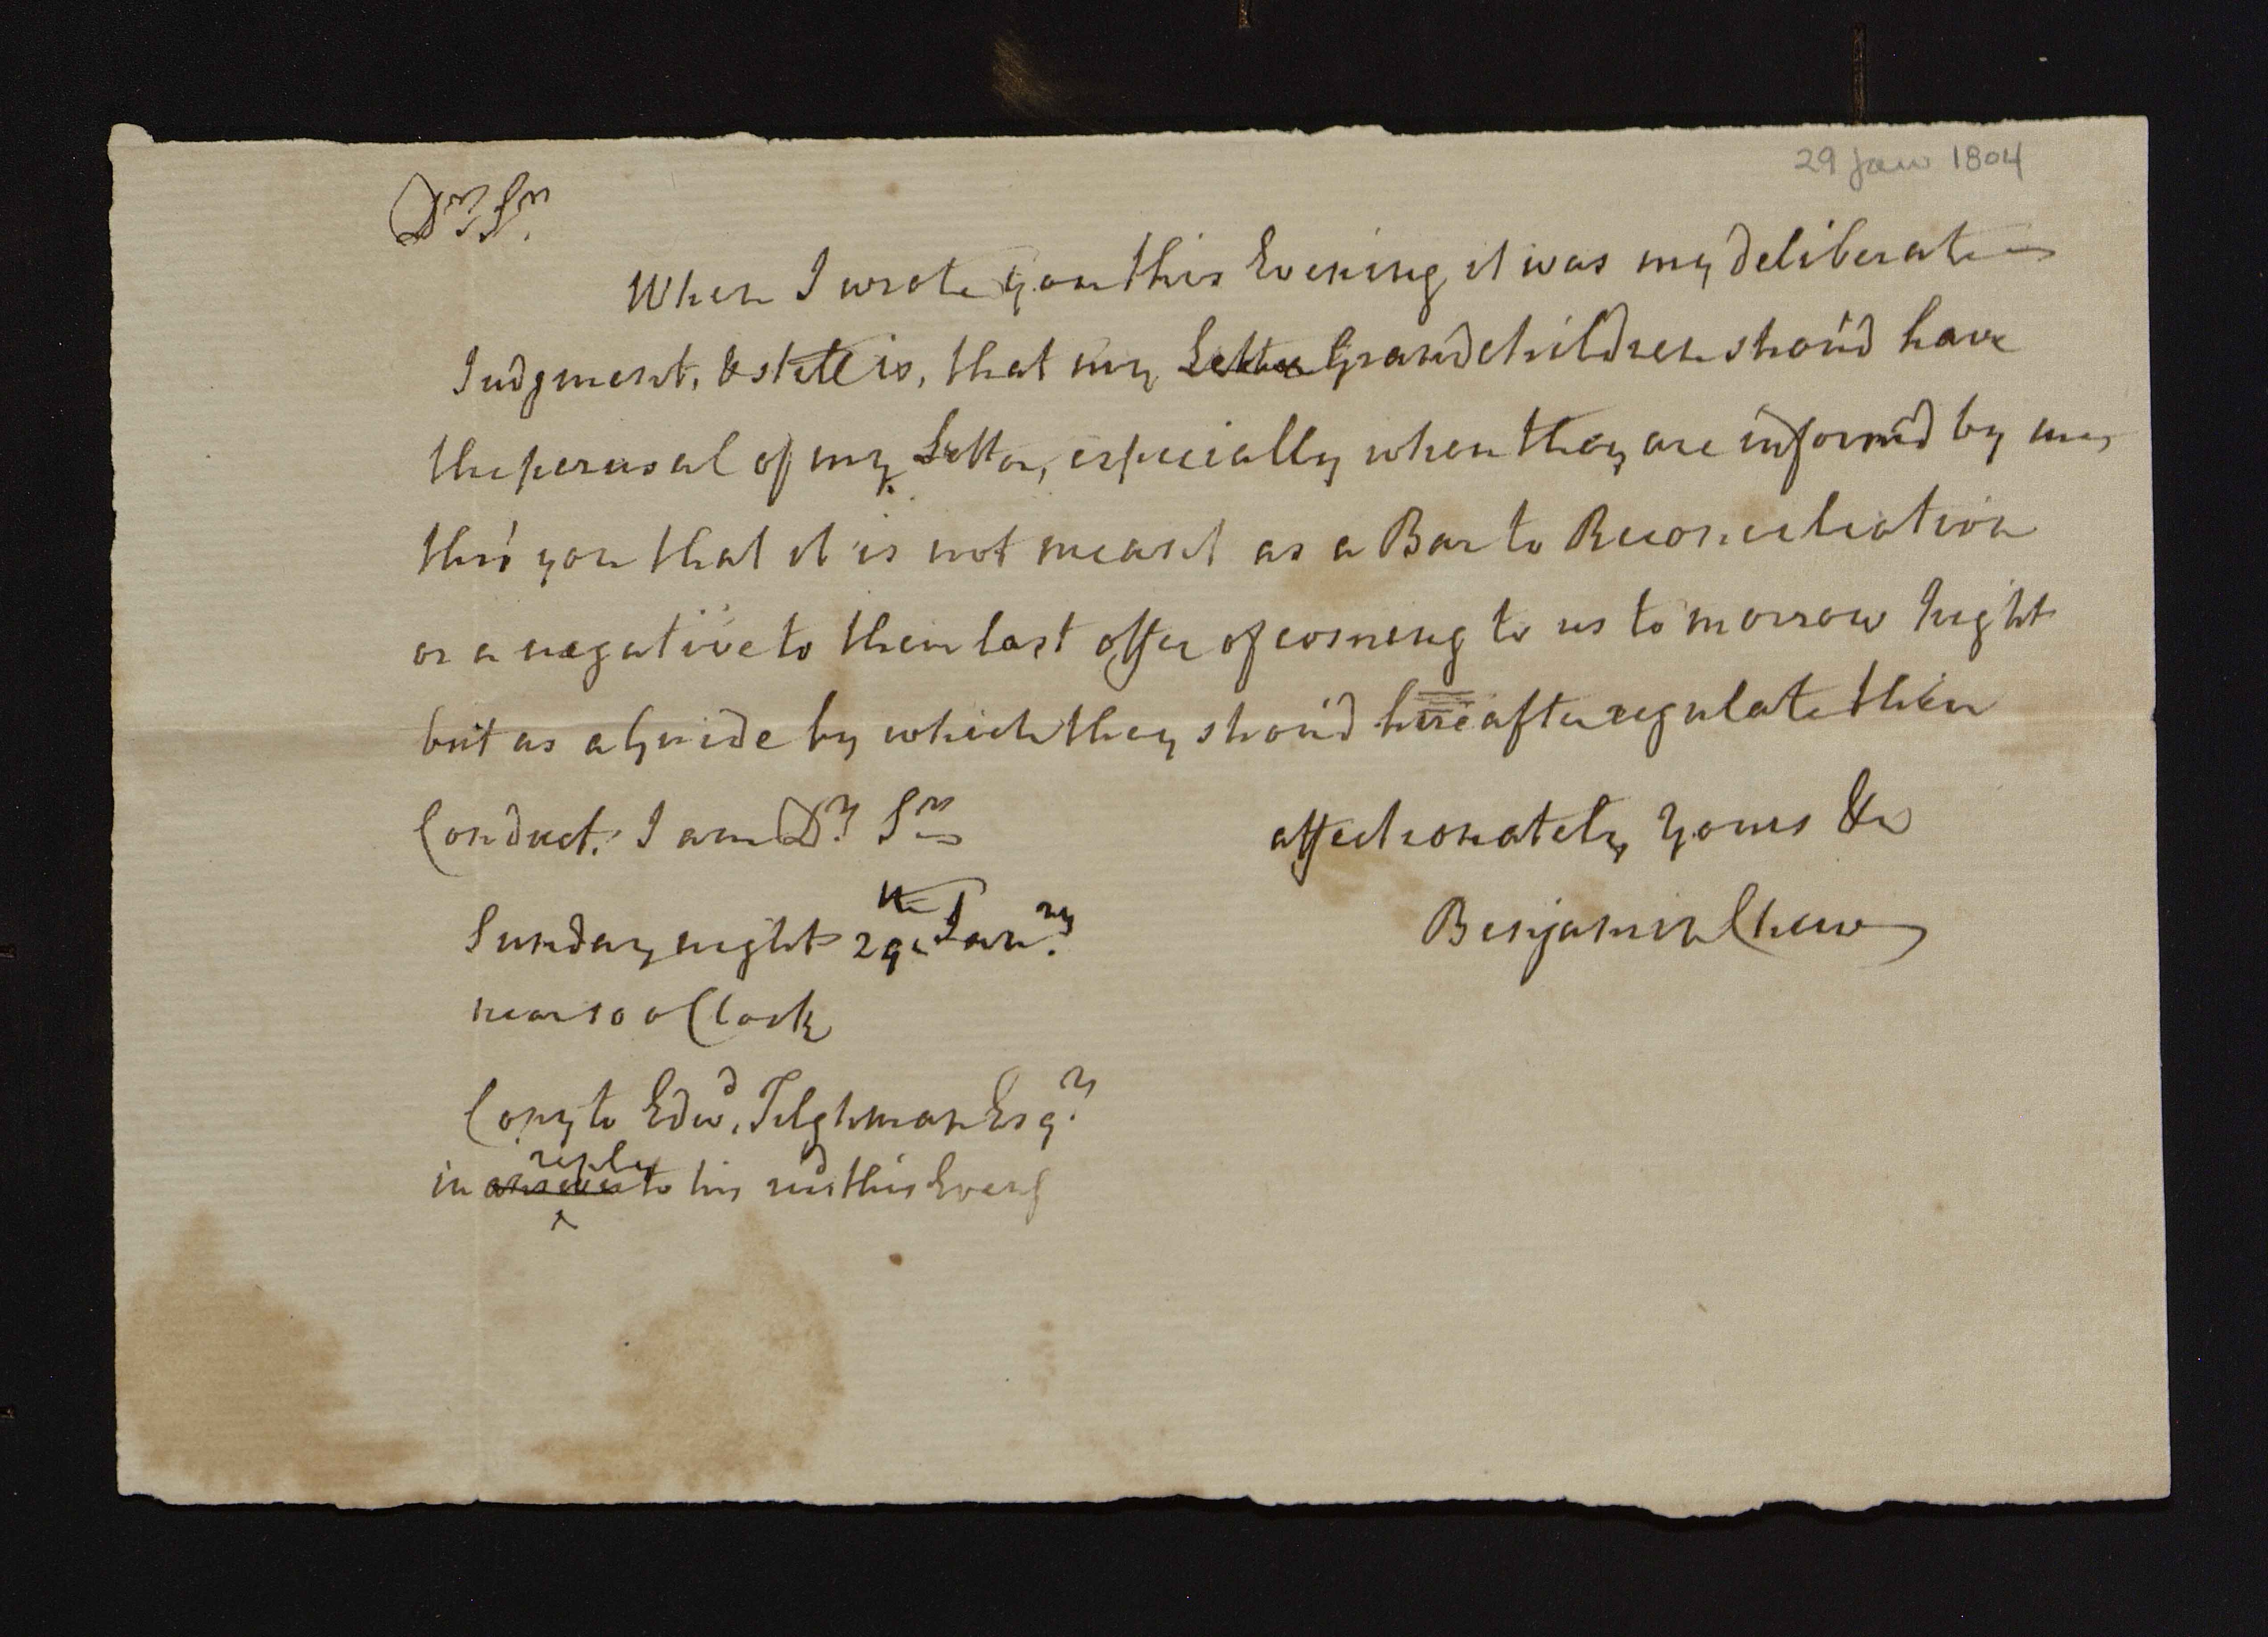 29 Jan 1804
Dr. Sr.
When I wrote you this Evening it was my deliberate
Judgment, & still is, that my Letter Grandchildren shou'd have
the perusal of my Letter, especially when they are inform'd by me
thro' you that it is not meant as a Bar to Reconciliation
or a negative to their last offer of coming to us to morrow Night
but as a Guide by which they shou'd hereafter regulate their
Conduct. I am Dr. Sr. affectionately Yours &c
Benjamin Chew
Sunday night 29th Janry.
near 10 oClock
Copy to Edwd. Tilghman Esqr.
in answer reply to his recd this Eveng